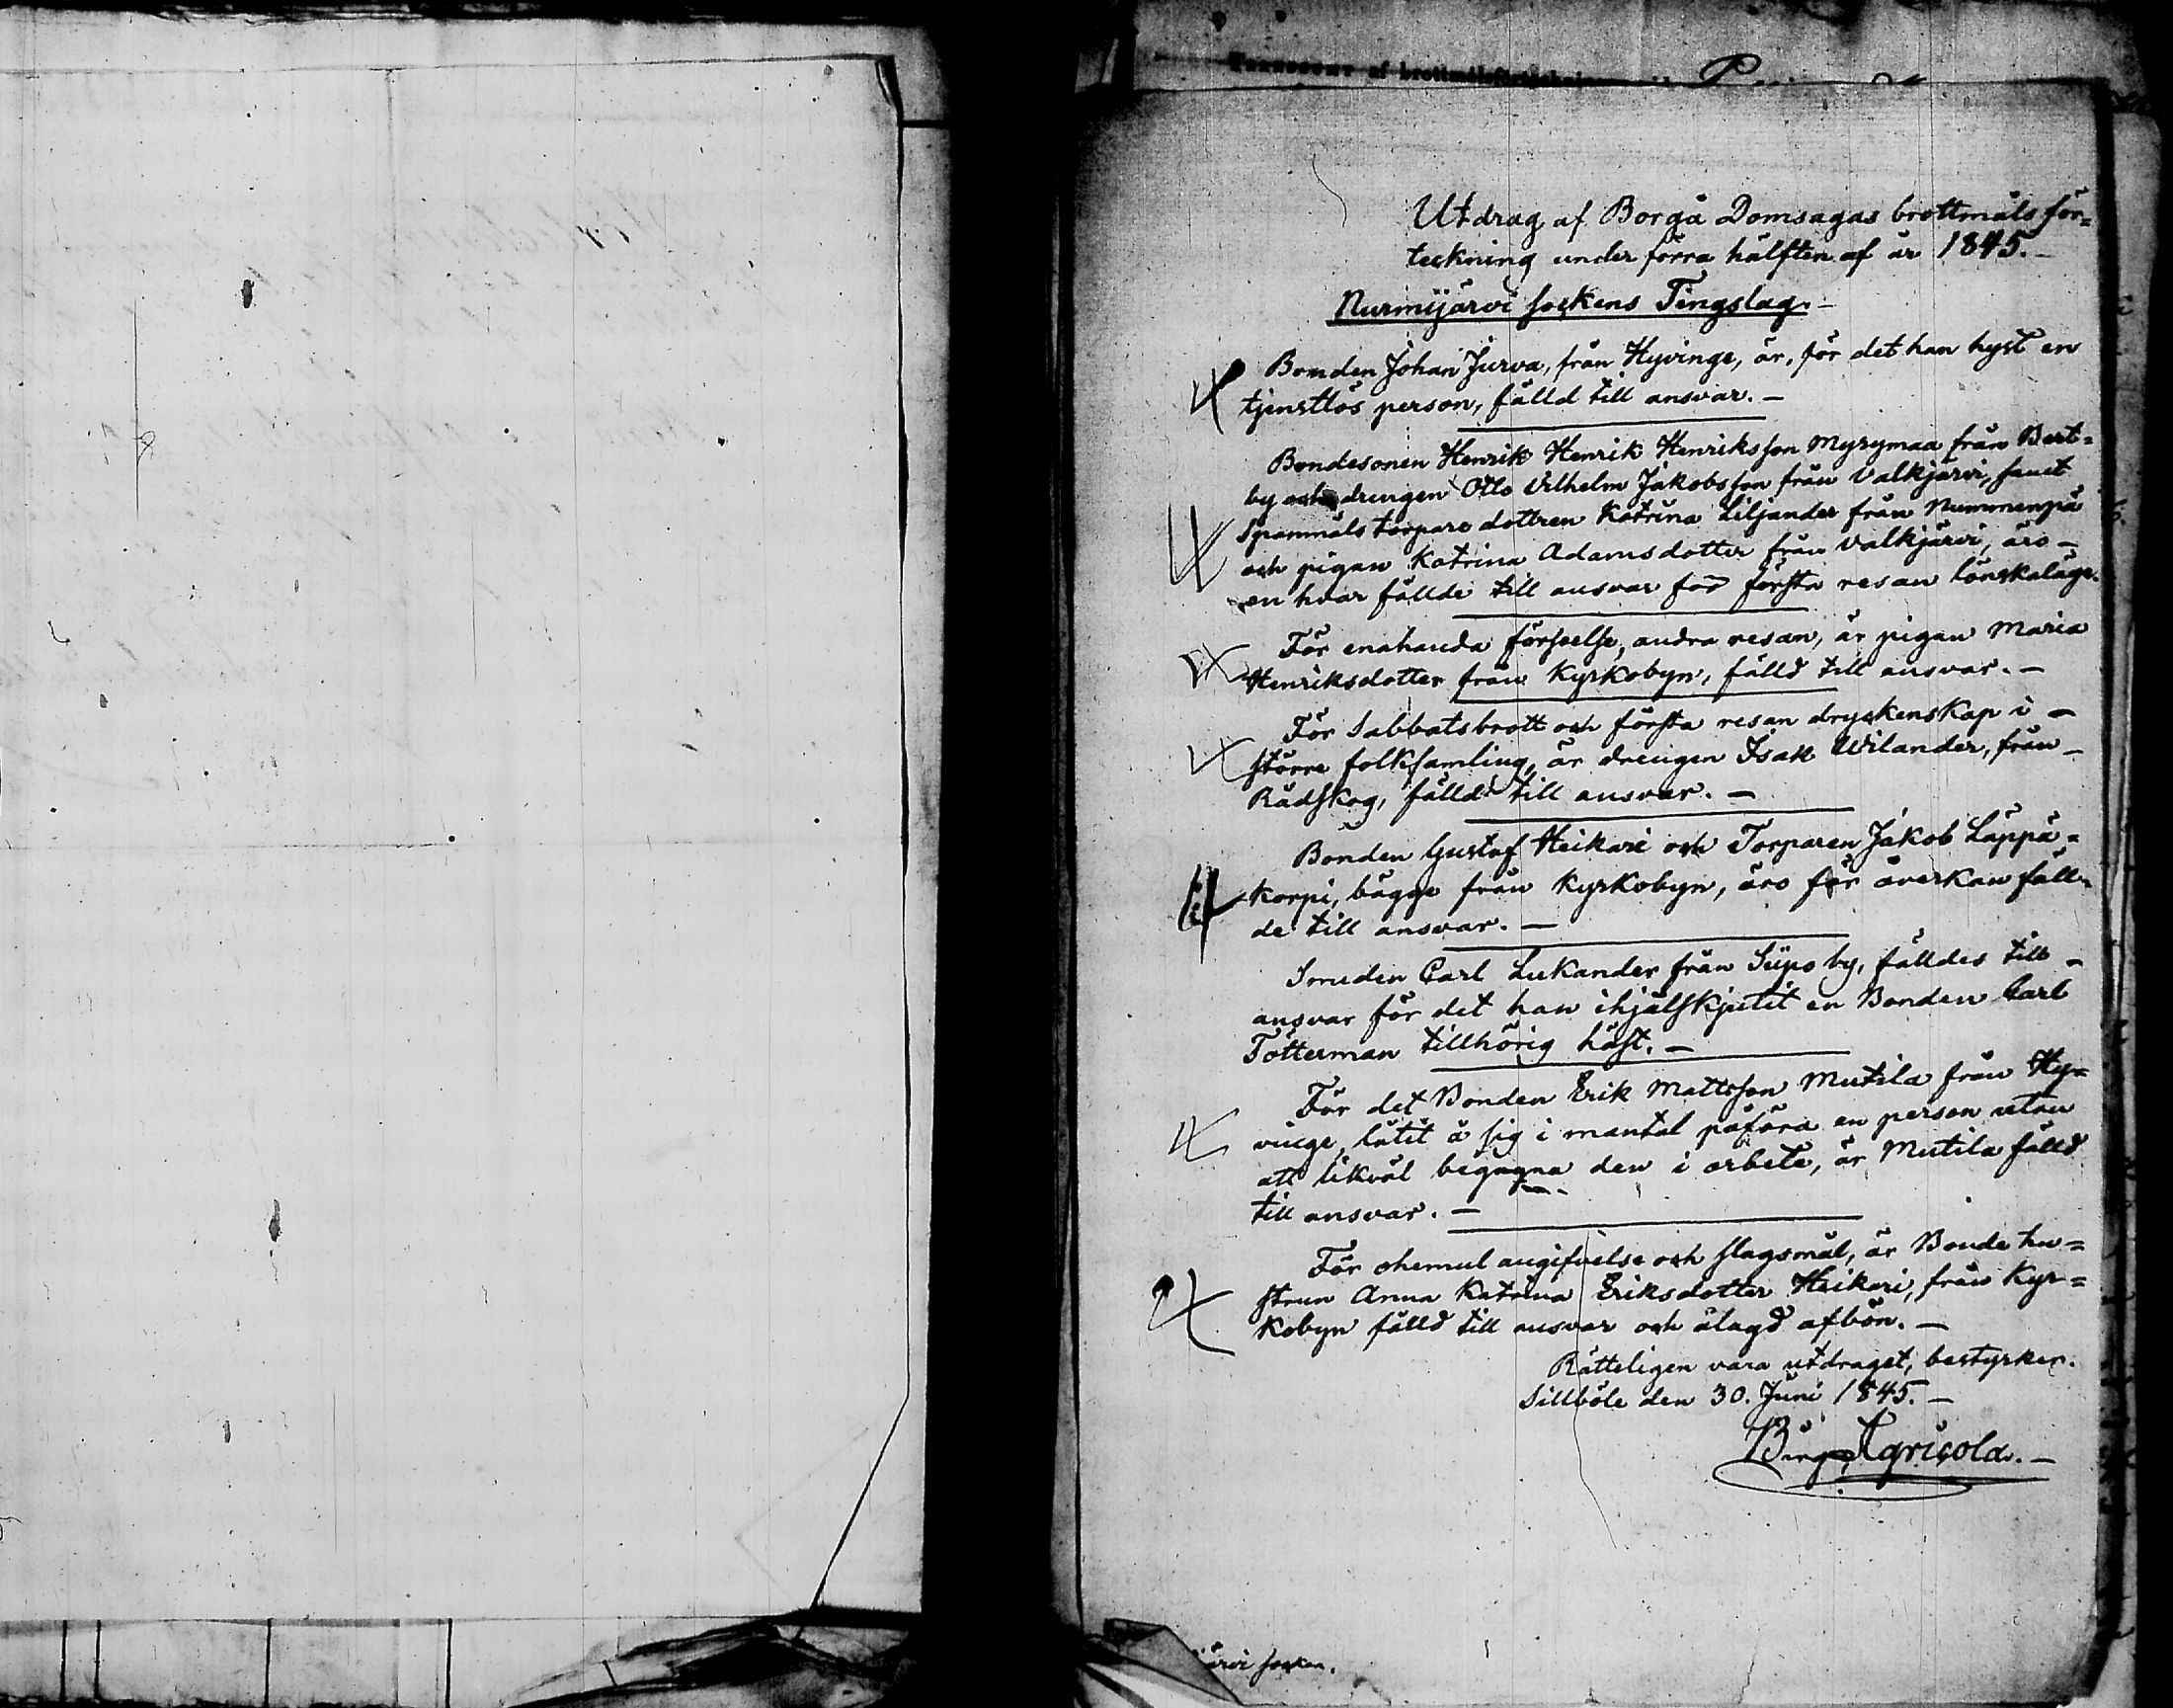 Utdrag af Borgå Domsagas brottmåls för=
teckning under förra hälften af år 1845.-
Nurmijärvi sockens Tingslag.-
Bonden Johan Jurva, från Hyvinge, är, för det han hyst en
tjenstlös person, fälld till ansvar. -
Bondesonen Henrik Henrik Henriksson Myrymaa från Bert=
by och drengen Otto Vilhelm Jakobsson från Valkjärvi, samt
Spanmåls torpare dottren Katrina Liljander från Nummenpä
och pigan Katrina Adamsdotter från Valkjärvi, äro -
en hvar fällde till ansvar för första resan lönskaläge.
För enahanda förseelse, andra resan, är pigan Maria
Henriksdotter från Kyrkobyn, fälld till ansvar. -
För Sabbatsbrott och första resan dryckenskap i -
större folksamling, är drengen Isak Wilander, från -
Rådskog, fälld till ansvar. -
Bonden Gustaf Heikari och Torparen Jakob Läppä=
korpi, bägge från Kyrkobyn, äro för åverkan fäll=
de till ansvar. -
Smeden Carl Lukander från Siipo by, fälldes till -
ansvar för det han ihjälskjutit en Bonden Carl
Tötterman tillhörig häst. -
För det Bonden Erik Mattsson Mutila från Hy=
vinge, låtit å sig i mantal påföra en person utan
att likväl begagna den i arbete, är Mutila fälld
till ansvar. -
För ohemul angifvelse och slagsmål, är Bonde hu=
strun Anna Katrina Eriksdotter Heikari, från Kyr=
kobyn fälld till ansvar och ålagd afbön. -
Rätteligen vara utdraget, bestyrker.
Sillböle den 30. Juni 1845. -
Agricola. -
ärvi socken.